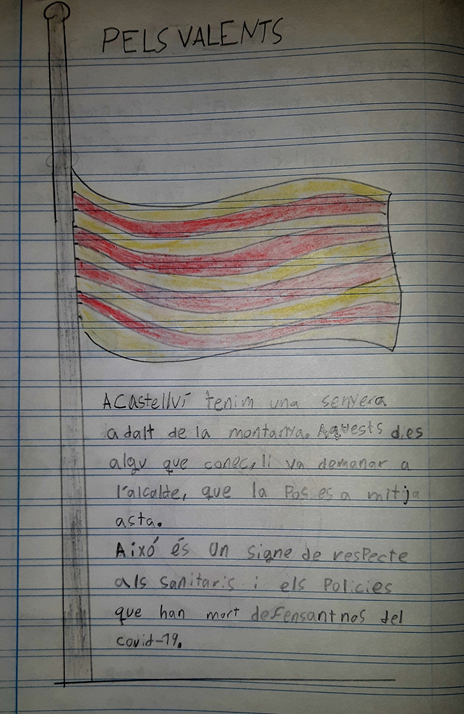 PELS VALENTS
A Castellví tenim una senyera
a dalt de la montanya. Aquests dies
algu que conec, li va demanar a
l'alcalde, que la Poses a mitja
asta.
Aixó és un signe de resPecte
als sanitaris i els Policies
que han mort defensantnos del
covid-19.